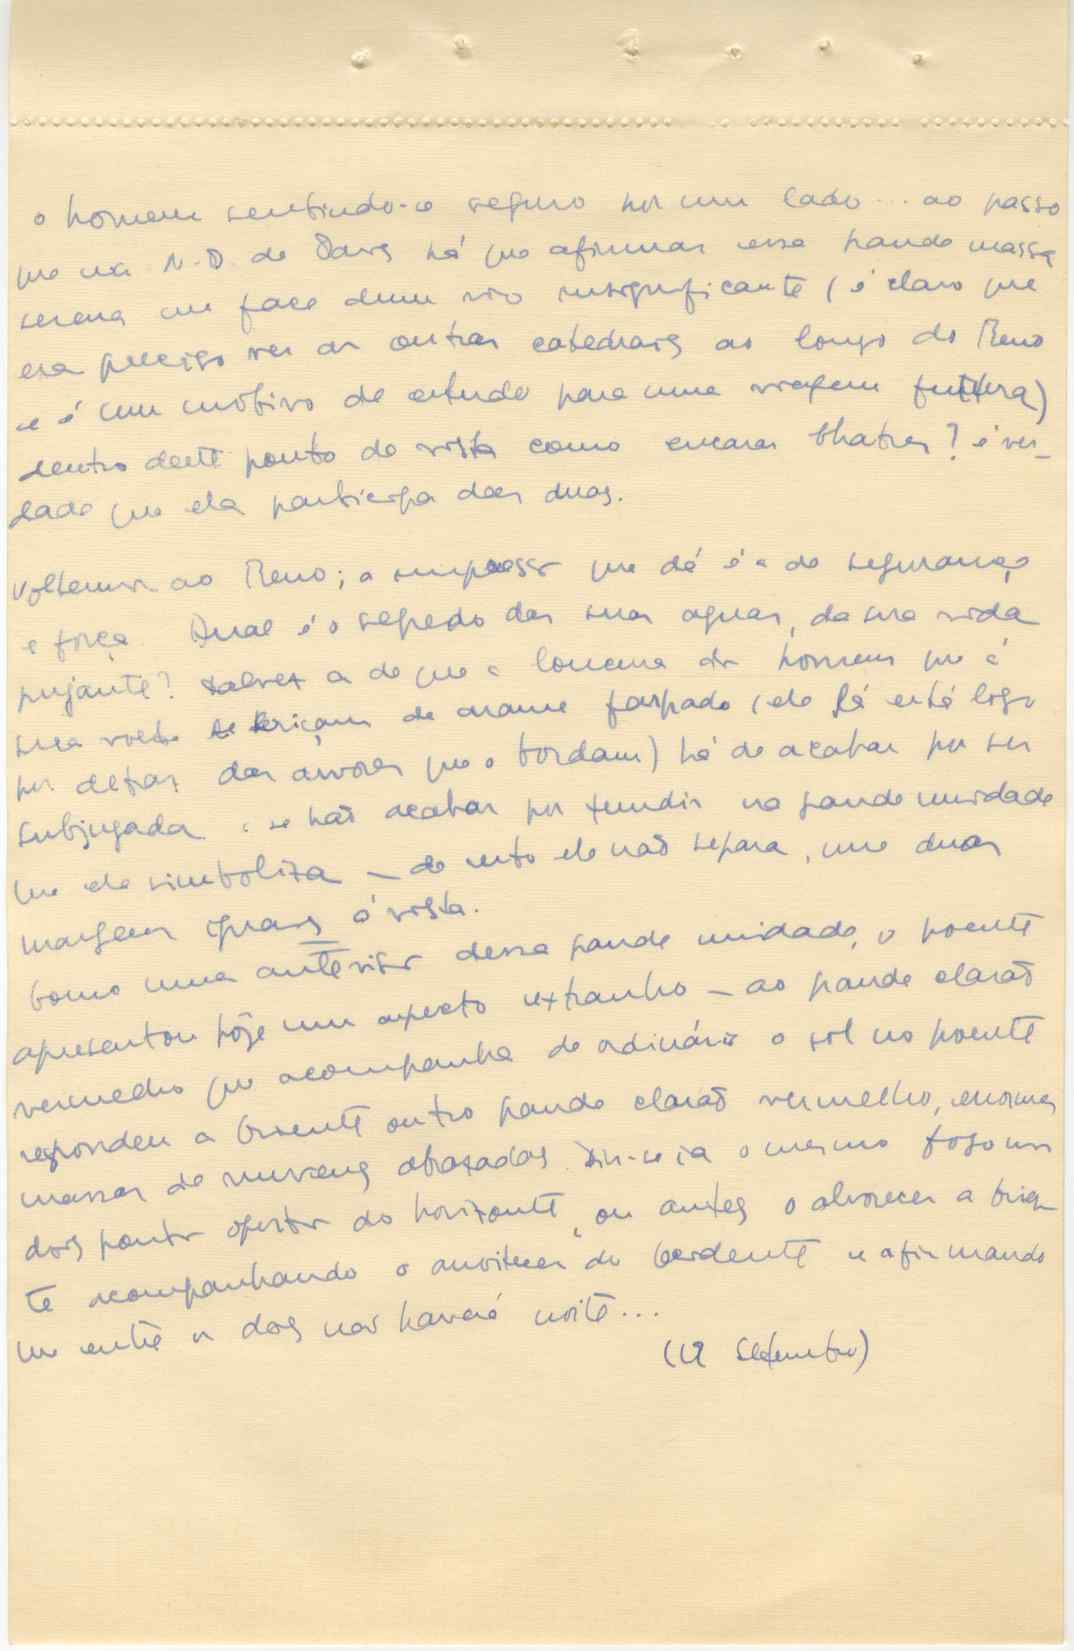 o homem sentindo-se seguro por um lado... ao passo
que na N.D. de Paris há que afirmar essa grande massa
serena em face dum rio insignificante (é claro que
era preciso ver as outras catedrais ao longo do Reno
e é um motivo de estudo para uma viagem futura)
dentro deste ponto de vista como encarar Chatres? é ver-
dade que ela participa das duas.
Voltemos ao Reno; a impressão que dá é a de segurança
e força. Qual é o segredo das suas aguas, da sua vida
pujante? talvez a de que a loucura dos homens que à
sua volta se eriçam de arame farpado (ele lá está logo
por detraz das arvores que o bordam) há de acabar por ser
subjugada e se hão acabar por fundir na grande unidade
que ele simboliza — de certo ele não separa, une duas
margens iguais à vista.
Como uma antevisão dessa grande unidade, o poente
apresentou hoje um aspecto extranho — ao grande clarão
vermelho que acompanha de ordinário o sol no poente
respondeu a oriente outro grande clarão vermelho, enormes
massas de nuvens abrazadas. Dir-se-ia o mesmo fogo nos
dois pontos opostos do horizonte, ou antes o alvorecer a orien-
te acompanhando o anoitecer do ocidente e afirmando
que entre os dois não haverá noite...
(12 Setembro)